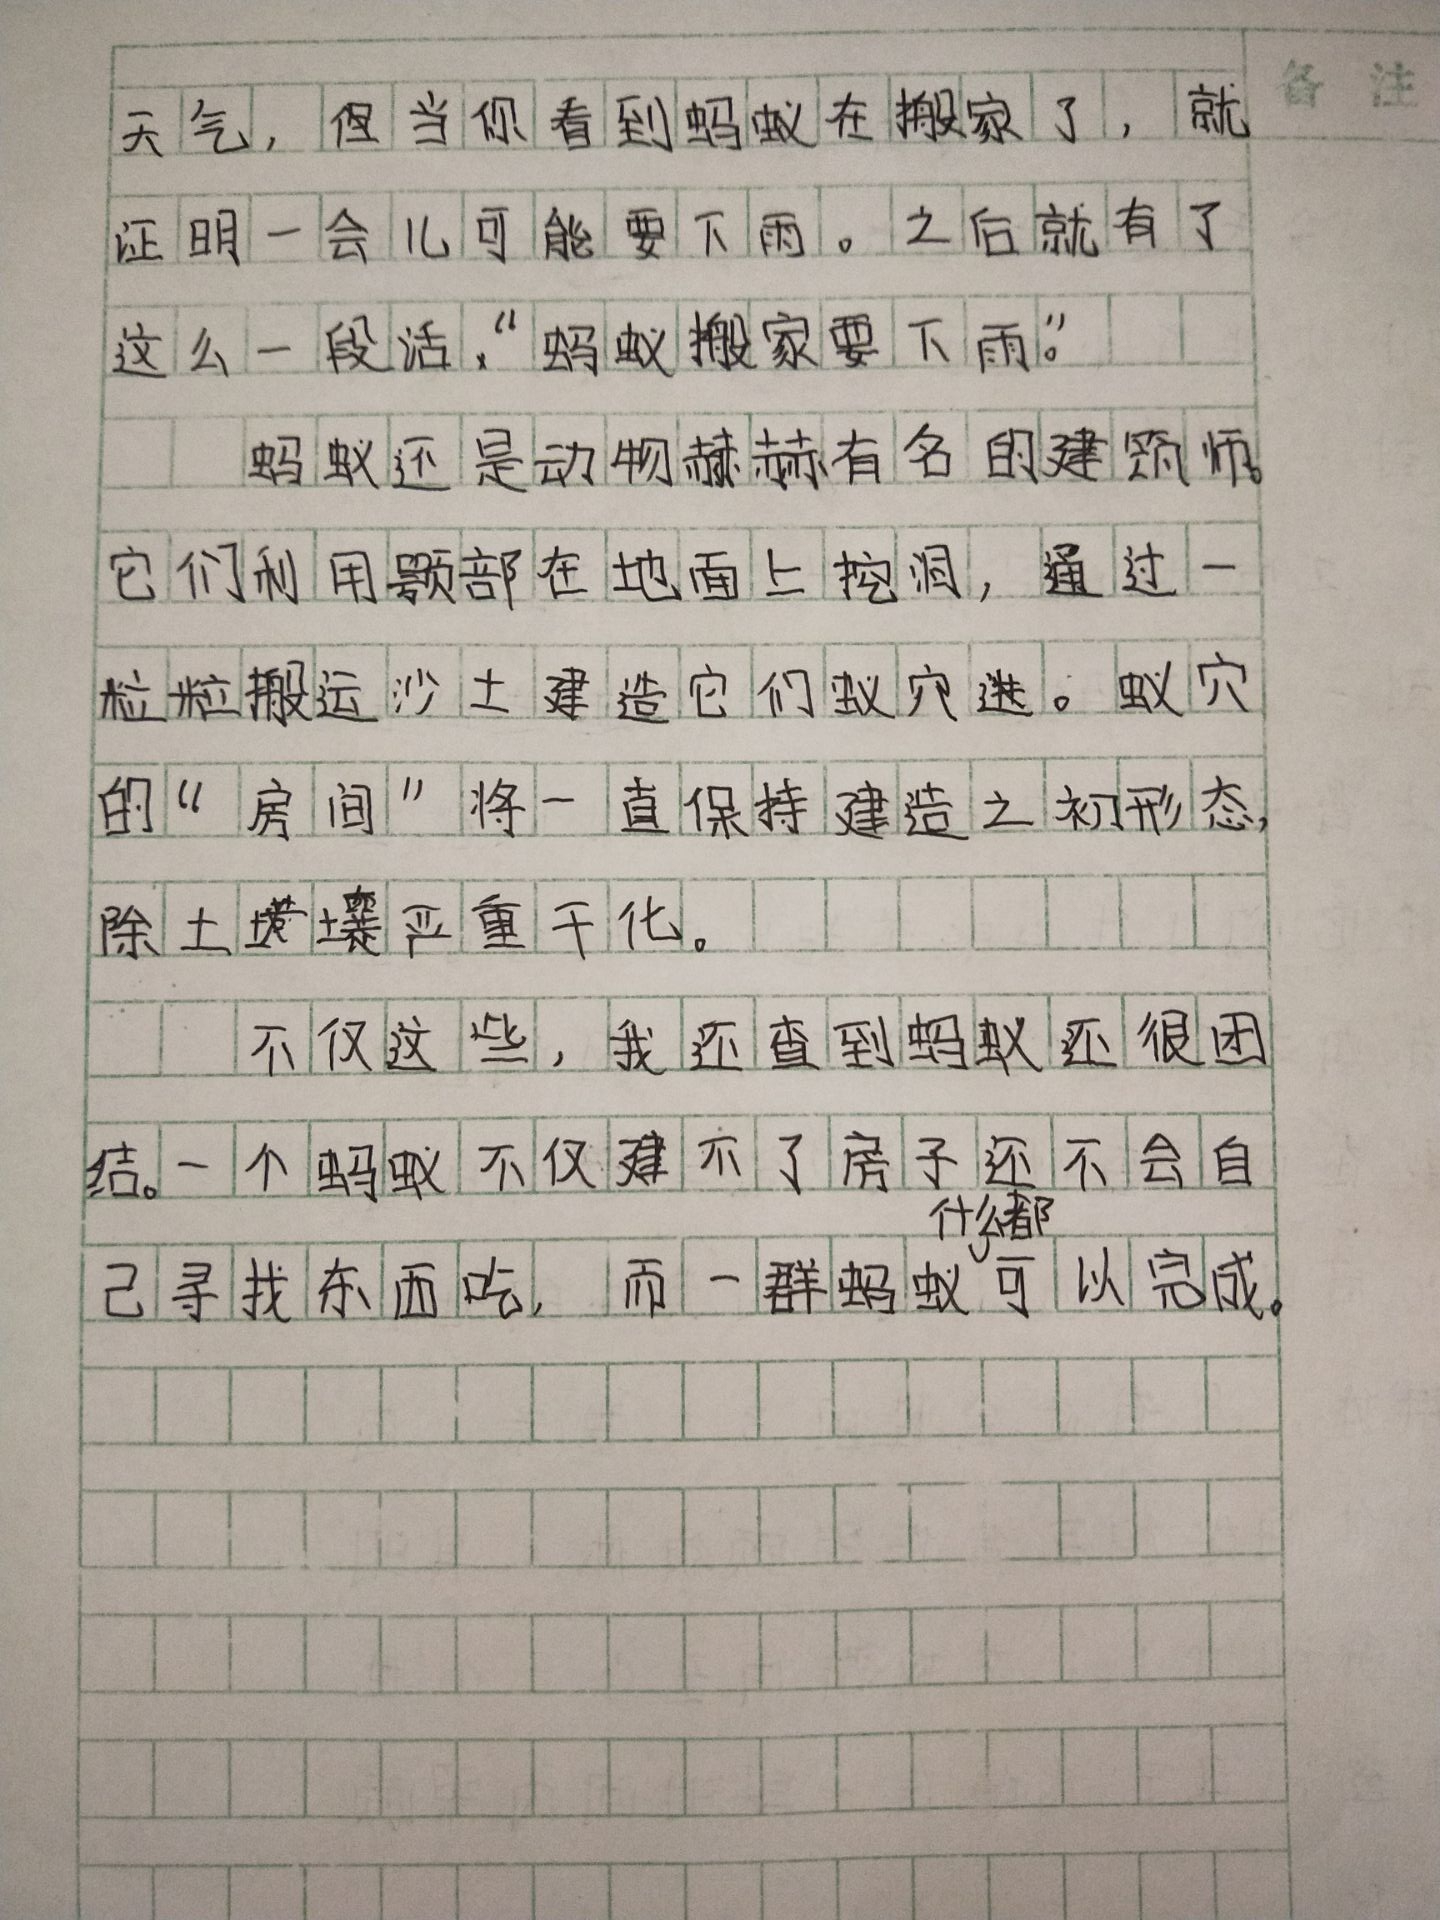 备注
天气，但当你看到蚂蚁在搬家了，就
证明一会儿可能要下雨。之后就有了
这么一段活，“蚂蚁搬家要下雨。”
蚂蚁还是动物赫赫有名的建筑师。
它们利用颚部在地面上挖洞，通过一
粒粒搬运沙土建造它们蚁穴进。蚁穴
的“房间”将一直保持建造之初形态，
除土壤严重干化。
不仅这些，我还查到蚂蚁还很团
结。一个蚂蚁不仅建不了房子还不会自
己寻找东西吃，而一群蚂蚁什么都可以完成。